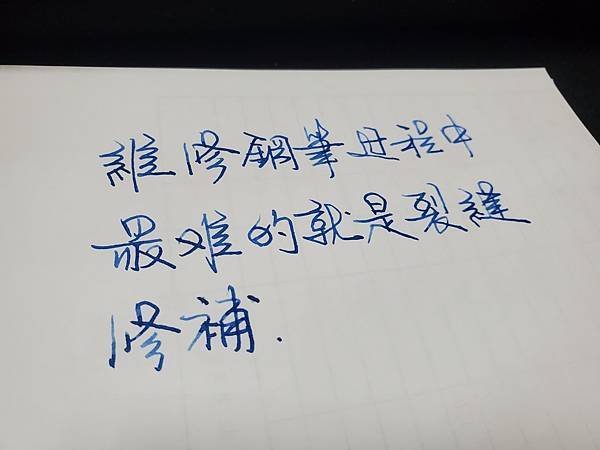 維修鋼筆过程中
最难的就是裂縫
修補.